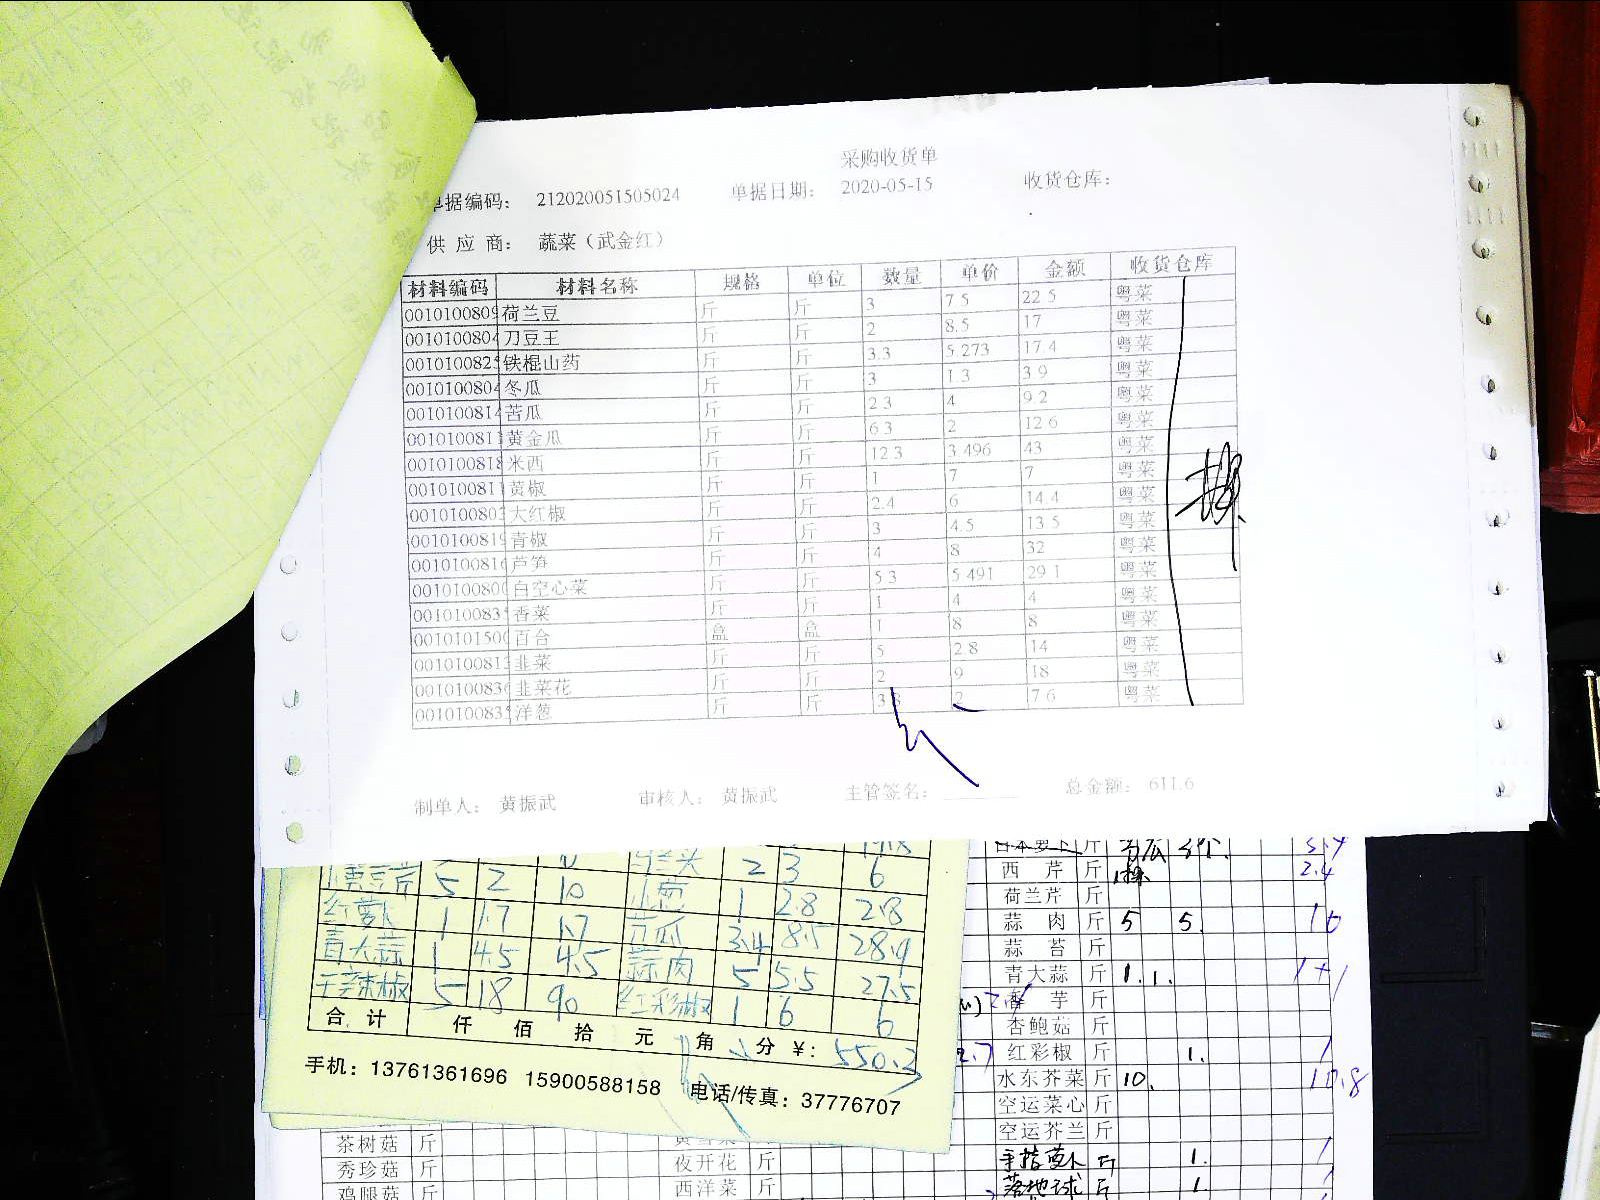 采购收货单
单据编码： 212020051505024 单据日期： 2020-05-15 收货仓库：
供 应 商： 蔬菜（武金红）
材料编码 材料名称 规格 单位 数量 单价 金额 收货仓库
0010100809 荷兰豆 斤 斤 3 7.5 22.5 粤菜
0010100804 刀豆王 斤 斤 2 8.5 17 粤菜
001010082 铁棍山药 斤 斤 3.3 5.273 17.4 粤菜
0010100804 冬瓜 斤 斤 3 1.3 3.9 粤菜
0010100814 苦瓜 斤 斤 2.3 4 9.2 粤菜
001010081 黄金瓜 斤 斤 6.3 2 12.6 粤菜
0010100818 米西 斤 斤 12.3 3.496 43 粤菜
001010081 黄椒 斤 斤 1 7 7 粤菜
001010080 大红椒 斤 斤 2.4 6 14.4 粤菜
001010081 青椒 斤 斤 3 4.5 13.5 粤菜
001010081 芦笋 斤 斤 4 8 32 粤菜
001010080 白空心菜 斤 斤 5.3 5.491 29.1 粤菜
001010083 香菜 斤 斤 1 4 4 粤菜
001010150 百合 盒 盒 1 8 8 粤菜
001010081 韭菜 斤 斤 5 2.8 14 粤菜
001010083 韭菜花 斤 斤 2 9 18 粤菜
001010083 洋葱 斤 斤 3.8 2 7.6 粤菜
制单人： 黄振武 审核人： 黄振武 主管签名： 总金额： 611.6
5 2 10 6
红萝卜 1 1.7 1.7 小葱 1 2.8 2.8
青大蒜 1 4.5 4.5 3.4 8.5 28.9
干辣椒 5 18 90 蒜肉 5 5.5 27.5
红彩椒 1 6 6
合 计 仟 佰 拾 元 角 分 ¥： 550.3
手机：13761361696 15900588158 电话/传真：37776707
日本萝卜 斤
西 芹 斤 2.4
荷兰芹 斤
蒜 肉 斤 5 5.
蒜 苔 斤
青大蒜 斤 1. 1.
香 芋 斤
杏鲍菇 斤
红彩椒 斤 1.
水东芥菜 斤 10. 10.8
空运菜心 斤
空运芥兰 斤
茶树菇 斤
秀珍菇 斤 夜开花 斤 手指萝卜 斤 1.
鸡腿菇 斤 西洋菜 斤 斤 1.